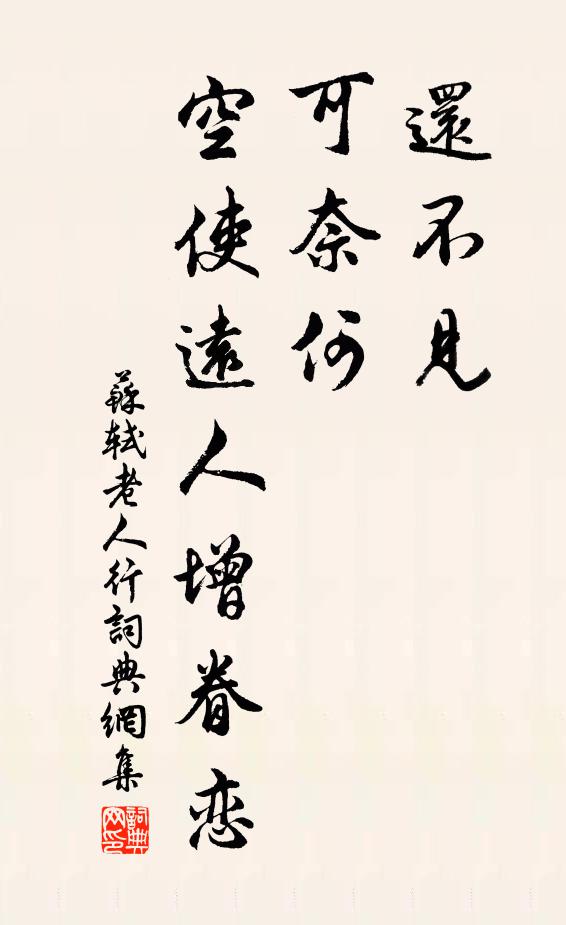 還不見
可奈何
空使遠人增眷恋
蘇軾老人行詞典網集
詞典網印